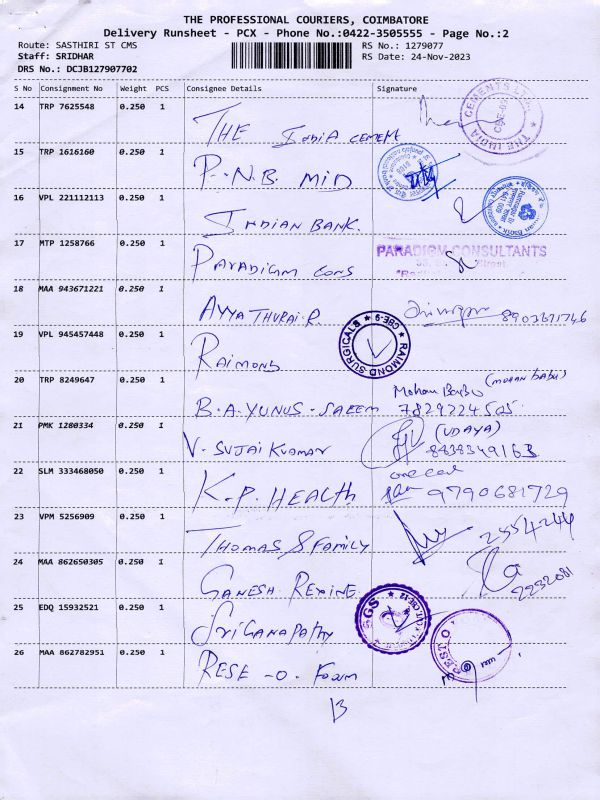 THE PROFESSIONAL COURIERS, COIMBATORE
Delivery Runsheet - PCX - Phone No.:0422-3505555 - Page No.:2
Route: SASTHIRI ST CMS RS No.: 1279077
Staff: SRIDHAR RS Date: 24-Nov-2023
DRS No.: DCJB127907702
S No Consignment No Weight PCS Consignee Details Signature
14 TRP 7625548 0.250 1
THE INDIA CEMENT
THE INDIA CEMENTS LTD.
15 TRP 1616160 0.250 1
P.N.B. MID
16 VPL 221112113 0.250 1
INDIAN BANK.
17 MTP 1258766 0.250 1
PARADIGM CONS
PARADIGM CONSULTANTS
18 MAA 943671221 0.250 1
AYYA THURAI.R. 8903671746
19 VPL 945457448 0.250 1
RAIMOND
RAIMOND SURGICALS ★ CBE-9 ★
20 TRP 8249647 0.250 1
B.A.YUNUS.SALEEM Mohan Babu (mohan babu)
21 PMK 1280334 0.250 1
V. SUJAI KUMAR (UDAYA)
8838349163
22 SLM 333468050 0.250 1
K.P. HEALTH 9790681729
23 VPM 5256909 0.250 1
THOMAS & FAMILY 2554244
24 MAA 862650305 0.250 1
GANESH REXINE 2232081
25 EDQ 15932521 0.250 1
SRI GANAPATHY
26 MAA 862782951 0.250 1
RESE -O. FOAM
13